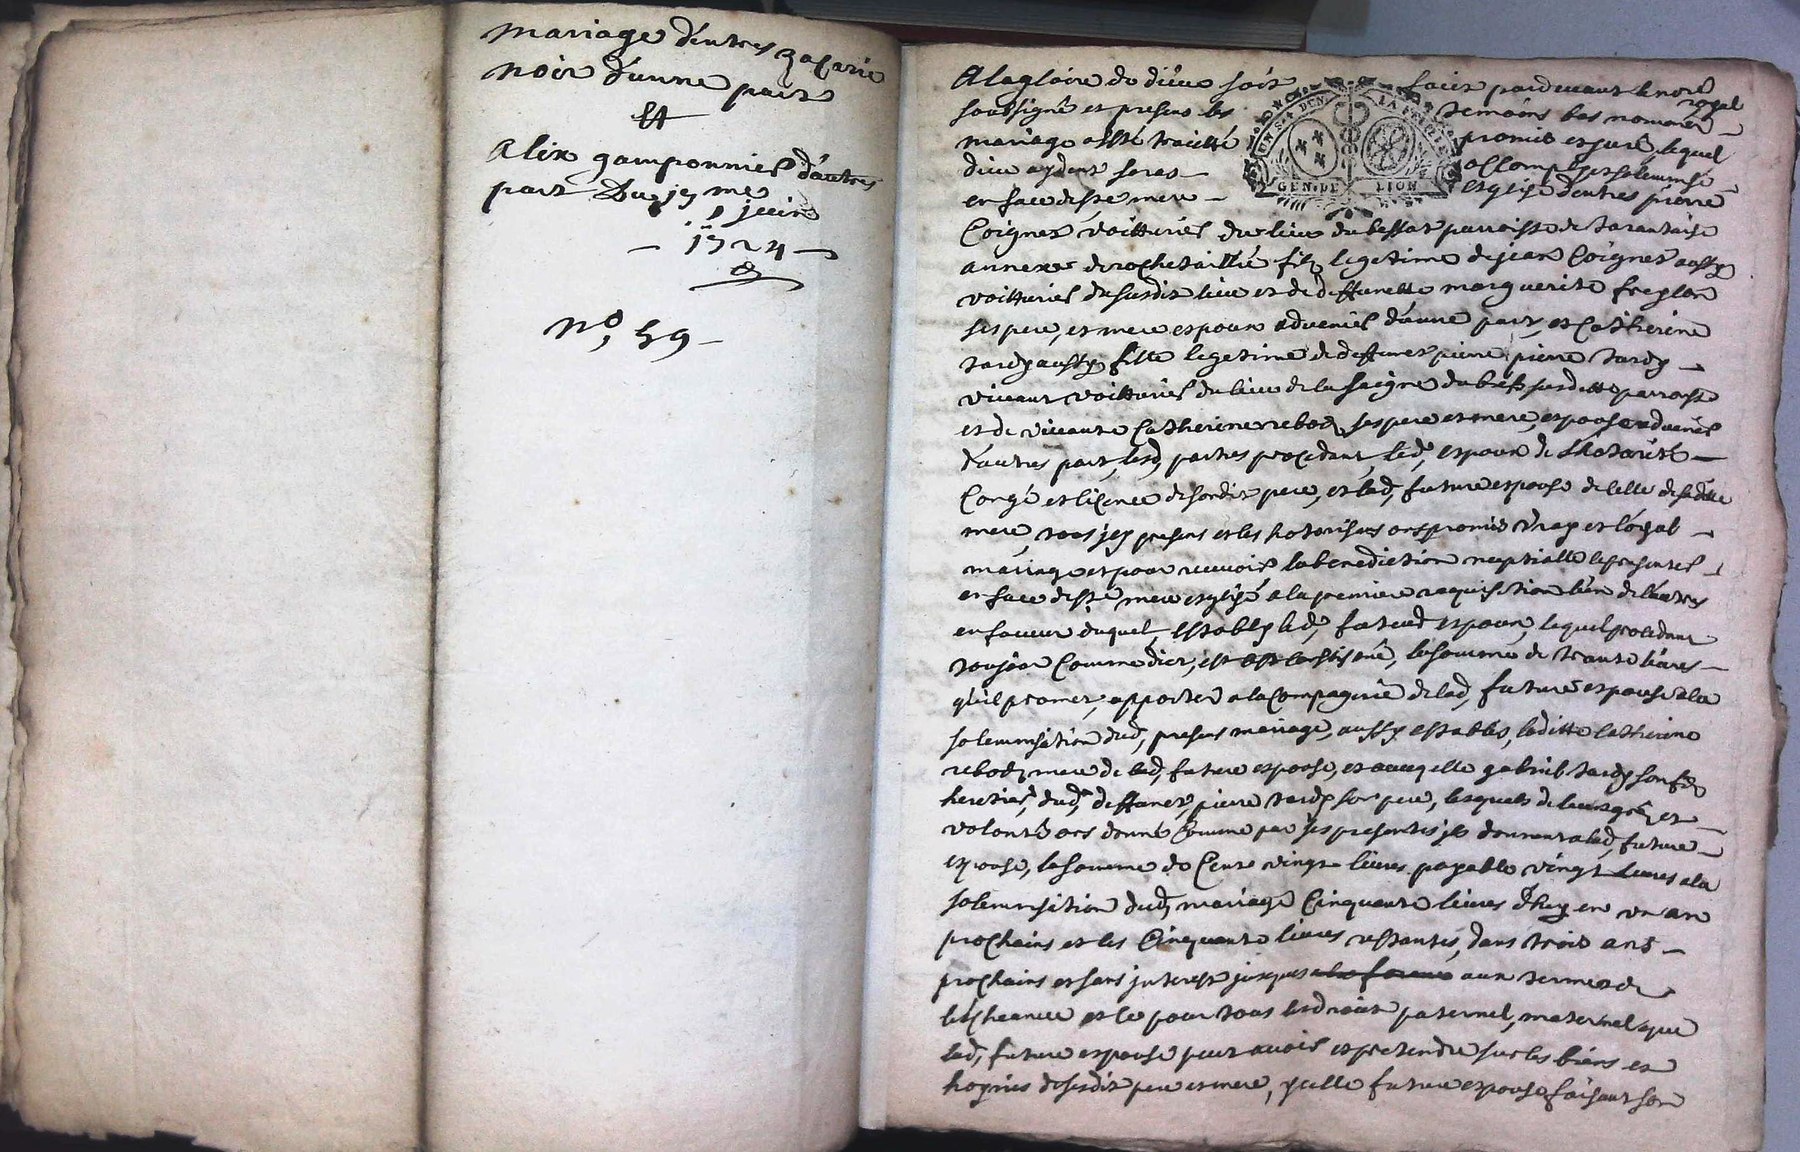 mariage d'entres zacarie
noir d'unne part
Et
alix gamponnier d'autres
part Du jx me
juin
1724
No, 59
A la gloire de dieu soit faict pardevant le nore royal
soubsigné et presens les temoins bas nommes
mariage a esté traitté promis et juré lequel
dieu aydent seras accomply et solemnisé
en face de ste mere esglise d'entres pierre
GEN. DE LION
Coignet voitturier du lieu du bessat parroisse de tarantaise
annexe de rochetaillié fils legetime de jean Coignet aussy
voitturier du susdit lieu et de deffunctte marguerite freylon
ses pere, et mere espoux advenier d'unne part, et Catherine
tardy aussy fille legetime de deffunct pierre pierre tardy
vivant voitturier du lieu de la faigne du susditte parroisse
et de vivante Catherine rebod, ses pere et mere, espouse advenir
d'autres part, lesd, parties procedant, led, espoux de l'hotorité
Congé et licence de sondit pere, et lad, future espouse de celle de saditte
mere, tous jcy presens et les hotorisans ont promis vray et loyal
mariage et pour recevoir la benediction nuptialle se presenter
en face de ste mere esglise a la premiere requisition l'un de l'autres
en faveur duquel, estably led, futeur espoux, lequel procedant
toujour Comme dict, s'est Constitué, la somme de trante livres
qu'il promet, apporter a la Compagnie de lad, future espouse a la
solemnisation dud, presens mariage, aussy establis, laditte Catherine
rebod, mere de lad, future espouse, et avecq elle gabriel tardy son fils
heretier, dud, deffunct, pierre tardy son pere, lesquels de leurs gré, et
volonté ont donné Comme par ses presentes jls donnent a lad, future
espouse, la somme de Cent vingt livres payable vingt livres a la
solemnisation dud, mariage Cinquante livres d'huy en un an
prochains et les Cinquante livres restantes, dans trois ans
prochains et sans jnterest jusques aux termes de
l'echeance et ce pour tous les droits paternel, maternel, que
lad, future espouse peut avoir et pretendre sur les biens et
hoyries de sesdit pere et mere, jcelle future espouse faisant son